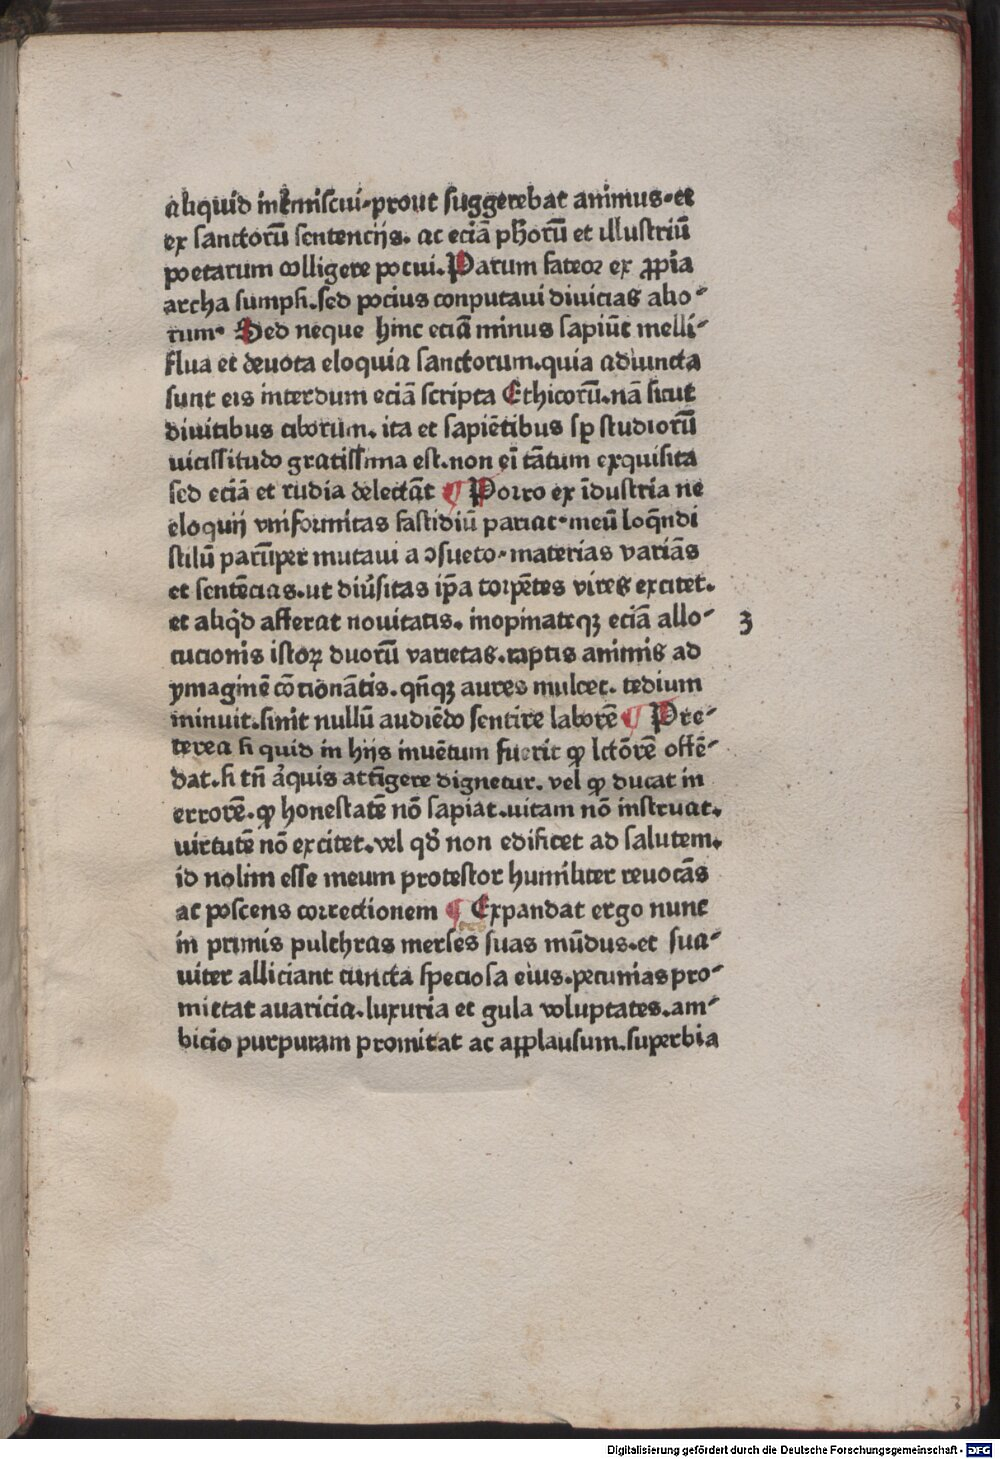 aliquid intermiscui·prout suggerebat animus·et
ex sanctorū sentencijs. ac eciā ph̄orū et illustriū
poetarum colligere potui. Parum fateor ex ꝓpia
archa sumpsi.sed pocius conputaui diuicias alio⸗
rum· Sed neque hinc eciā minus sapiūt melli⸗
flua et deuota eloquia sanctorum.quia adiuncta
sunt eis interdum eciā scripta Ethicorū.nā sicut
diuitibus ciborum. ita et sapiētibus sꝑ studiorū
uicissitudo gratissima est.non eī tātum exquisita
sed eciā et rudia delectāt ¶ Porro ex īdustria ne
eloquij vniformitas fastidiū pariat·meū loquēdi
stilū parūper mutaui a ɔsueto·materias variās
et sentēcias.ut diūsitas ip̄a torpētes vires excitet.
et aliqͥd afferat nouitatis. inopinateqꝫ eciā allo⸗
3
cucionis istoꝝ duorū varietas.raptis animis ad
ymaginē cōcionātis. qn̄qꝫ aures mulcet. tedium
minuit.sinit nullū audiēdo sentire laborē ¶ Pre⸗
terea si quid in hijs inuētum fuerit ꝙ lctōrē offē⸗
dat.si tn̄ aͥquis attīgere dignetur. vel ꝙ ducat in
errorē.ꝙ honestatē nō sapiat.uitam nō instruat.
virtutē nō excitet.vel qđ non edificet ad salutem.
id nolim esse meum protestor humiliter reuocās
ac poscens correctionem ¶ Expandat ergo nunc
in primis pulchras merses suas mūdus.et sua⸗
uiter alliciant cuncta speciosa eius.pecunias pro⸗
mittat auaricia.luxuria et gula voluptates.am⸗
bicio purpuram promittat ac applausum.superbia
3
Digitalisierung gefördert durch die Deutsche Forschungsgemeinschaft - DFG